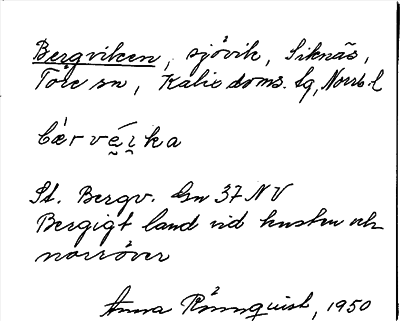 Bergviken, sjövik, Siknäs,
Töre sn, Kalix doms. tg, Norrb. l
bæ̀rvḛ́ḭka
St. Bergv. Gn 37 NV
Bergigt land vid kusten och
norröver
Anna Rönnquist, 1950